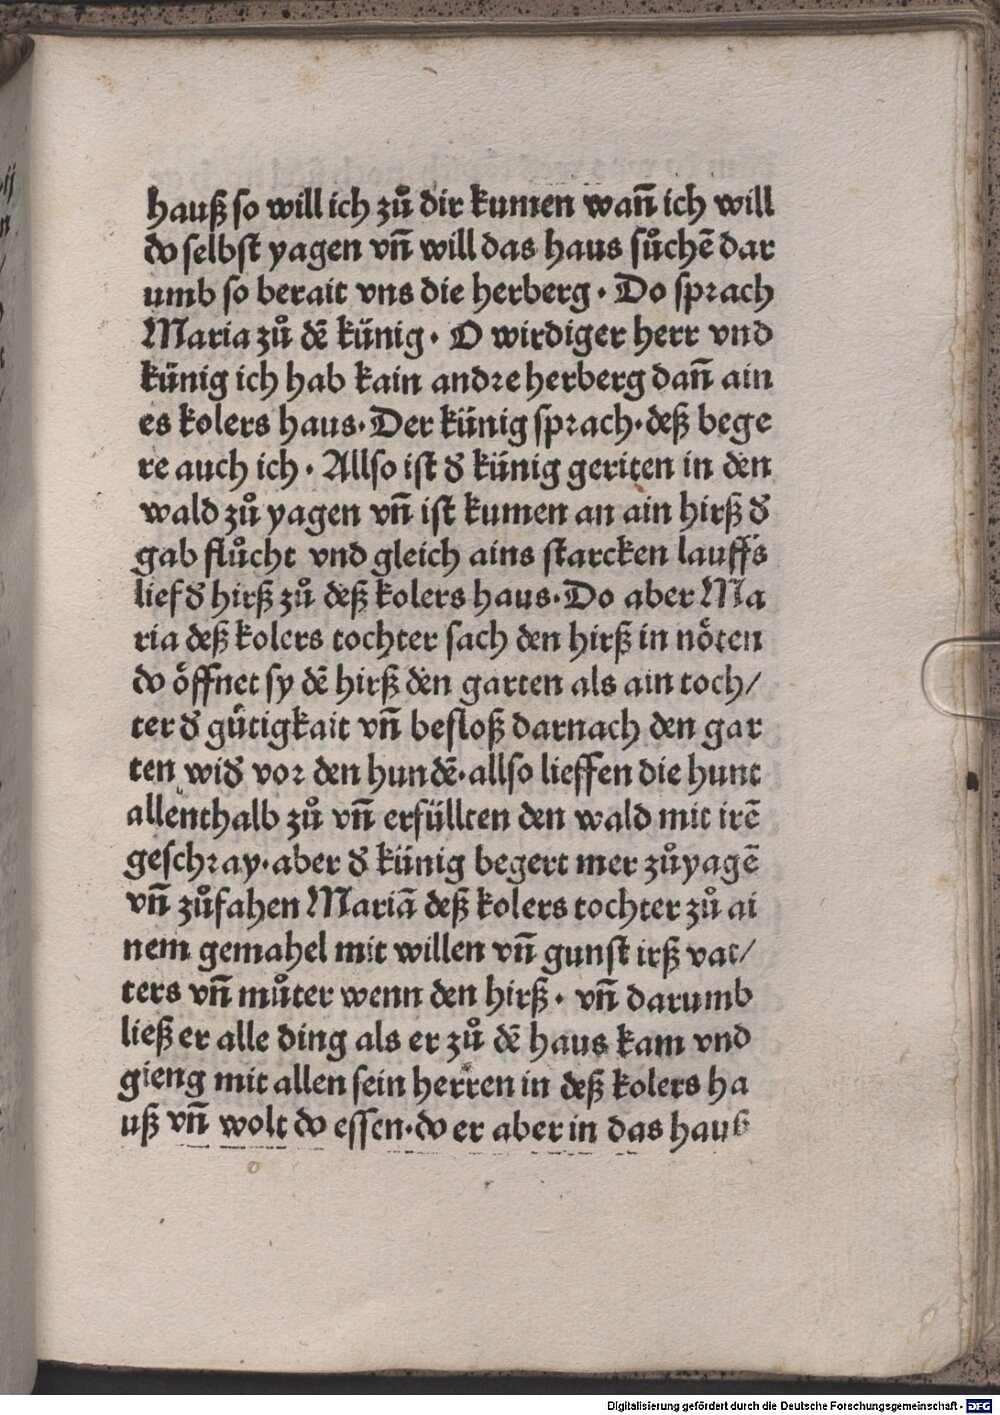 hauß so will ich zů dir kumen wañ ich will
do selbst yagen vñ will das haus sůchē dar
umb so berait vns die herberg · Do sprach
Maria zů dē künig · O wirdiger herr vnd
künig ich hab kain andre herberg dañ ain
es kolers haus · Der künig sprach · deß bege
re auch ich · Allso ist đ künig geriten in den
wald zů yagen vñ ist kumen an ain hirß đ
gab flůcht vnd gleich ains starcken lauffs
lief đ hirß zů deß kolers haus · Do aber Ma
ria deß kolers tochter sach den hirß in nöten
do öffnet sy dē hirß den garten als ain toch/
ter đ gütigkait vñ besloß darnach den gar
ten wiđ vor den hundē · allso lieffen die hunt
allenthalb zů vñ erfüllten den wald mit irē
geschray · aber đ künig begert mer zůyagē
vñ zůfahen Mariā deß kolers tochter zů ai
nem gemahel mit willen vñ gunst irß vat/
ters vñ můter wenn den hirß · vñ darumb
ließ er alle ding als er zů dē haus kam vnd
gieng mit allen sein herren in deß kolers ha
uß vñ wolt do essen · do er aber in das hauß
Digitalisierung gefördert durch die Deutsche Forschungsgemeinschaft - DFG